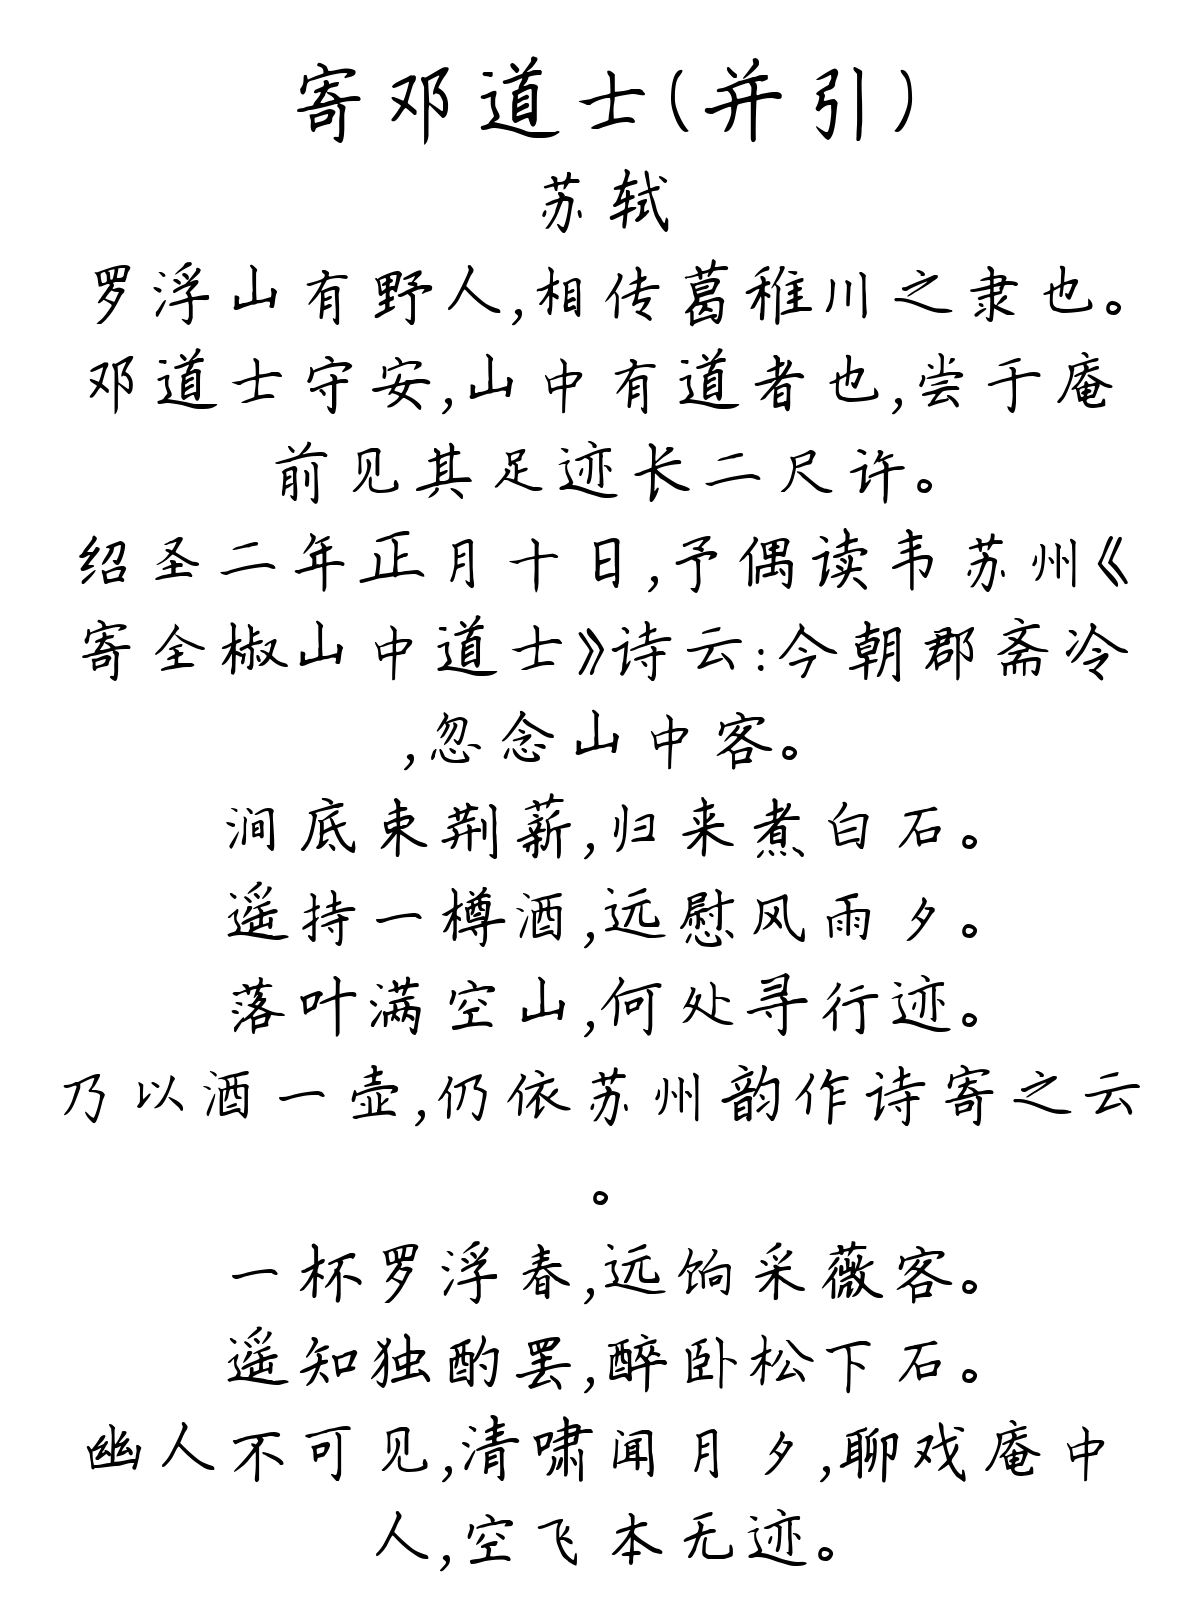 寄邓道士(并引)
苏轼
罗浮山有野人,相传葛稚川之隶也。
邓道士守安,山中有道者也,尝于庵
前见其足迹长二尺许。
绍圣二年正月十日,予偶读韦苏州《
寄全椒山中道士》诗云:今朝郡斋冷
,忽念山中客。
涧底束荆薪,归来煮白石。
遥持一樽酒,远慰风雨夕。
落叶满空山,何处寻行迹。
乃以酒一壶,仍依苏州韵作诗寄之云
。
一杯罗浮春,远饷采薇客。
遥知独酌罢,醉卧松下石。
幽人不可见,清啸闻月夕,聊戏庵中
人,空飞本无迹。